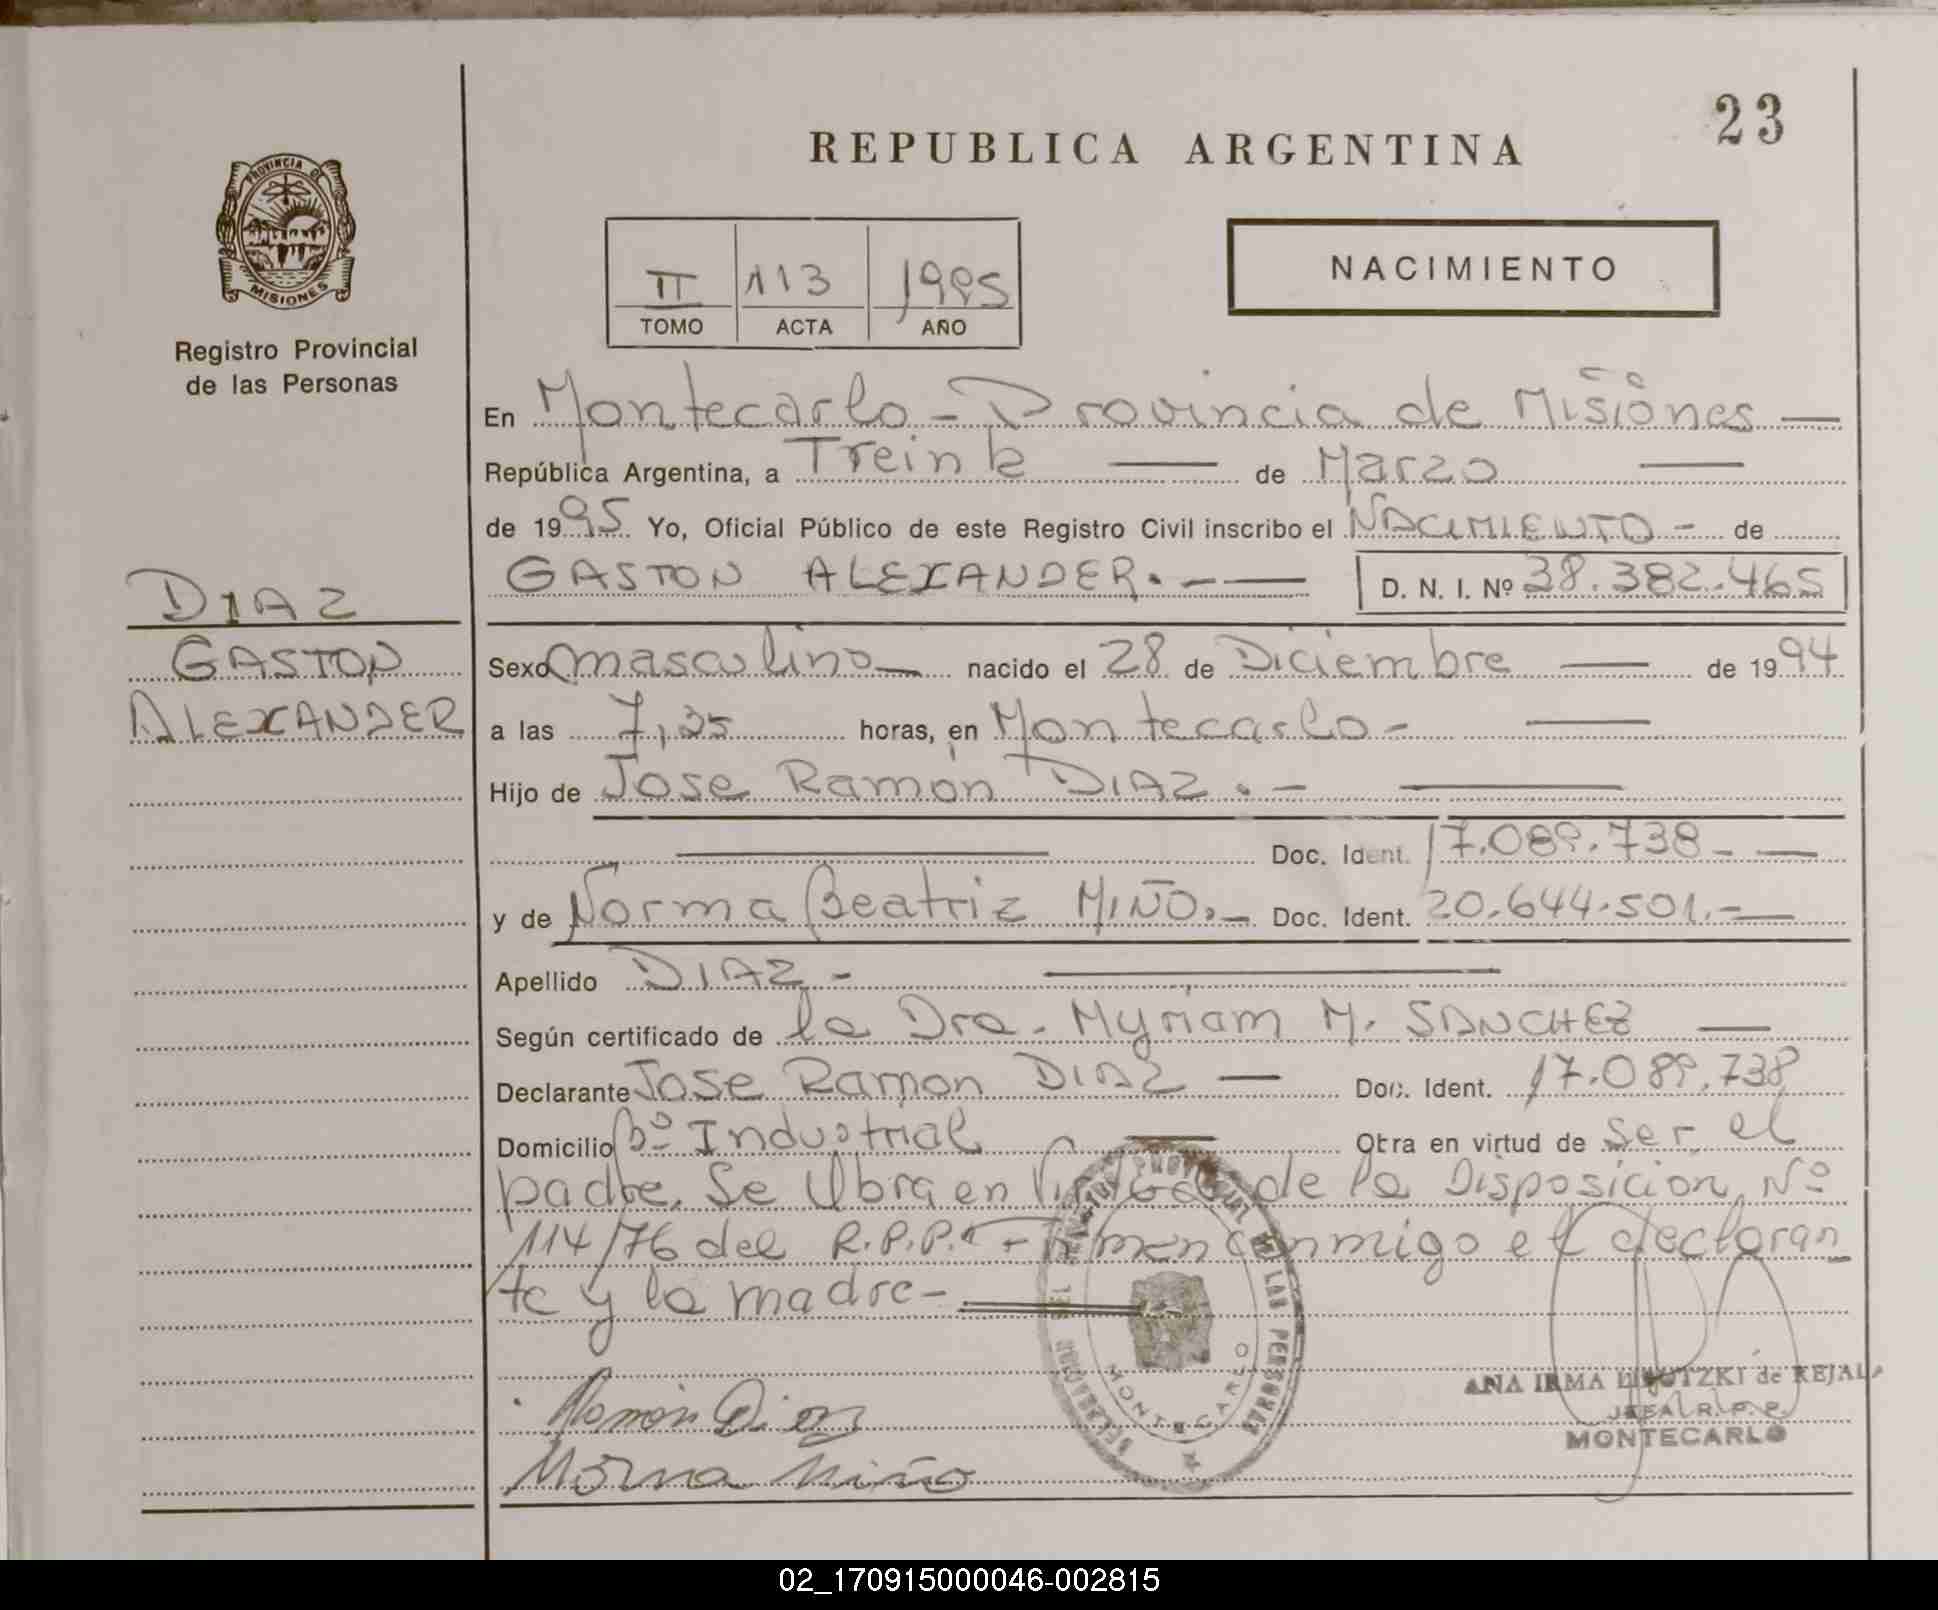 23
REPUBLICA ARGENTINA
PROVINCIA DE
MISIONES
Registro Provincial
de las Personas
II 113 1995
TOMO ACTA AÑO
NACIMIENTO
En Montecarlo - Provincia de Misiones —
República Argentina, a Treinta — de Marzo —
de 1995 Yo, Oficial Público de este Registro Civil inscribo el NACIMIENTO - de
GASTON ALEXANDER. - — D. N. I. Nº 38.382.465
DIAZ
GASTON
ALEXANDER
Sexo masculino — nacido el 28 de Diciembre — de 1994
a las 7,35 horas, en Montecarlo - —
Hijo de Jose Ramon DIAZ . - —
— Doc. Ident. 17.089.738 - —
y de Norma Beatriz MIÑO. - Doc. Ident. 20.644.501. - —
Apellido DIAZ - —
Según certificado de la Dra. Myriam M. SANCHEZ —
Declarante Jose Ramon DIAZ — Doc. Ident. 17.089.738
Domicilio Bº Industrial — Obra en virtud de Ser el
padre. Se Obra en de la Disposicion Nº
114/76 del R.P.P. Firman conmigo el declaran
te y la madre -
Ramón Diaz
Norma Miño
MONTECARLO
ANA IRMA de REJALA
JEFA R. P. P.
MONTECARLO
02_170915000046-002815